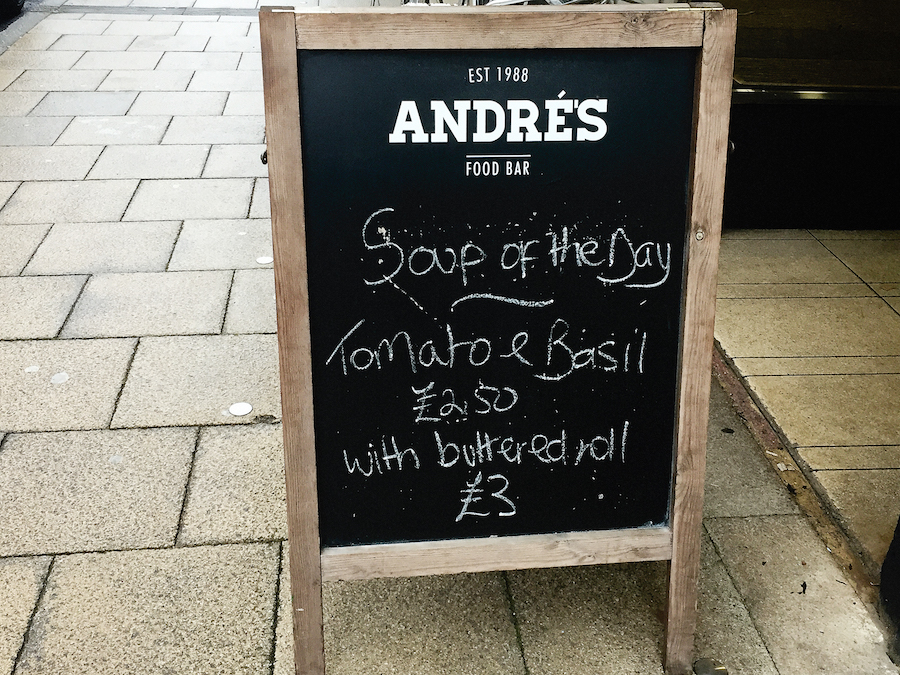 EST 1988
ANDRÉ'S
FOOD BAR
Soup of the Day
Tomato & Basil
£2.50
with buttered roll
£3